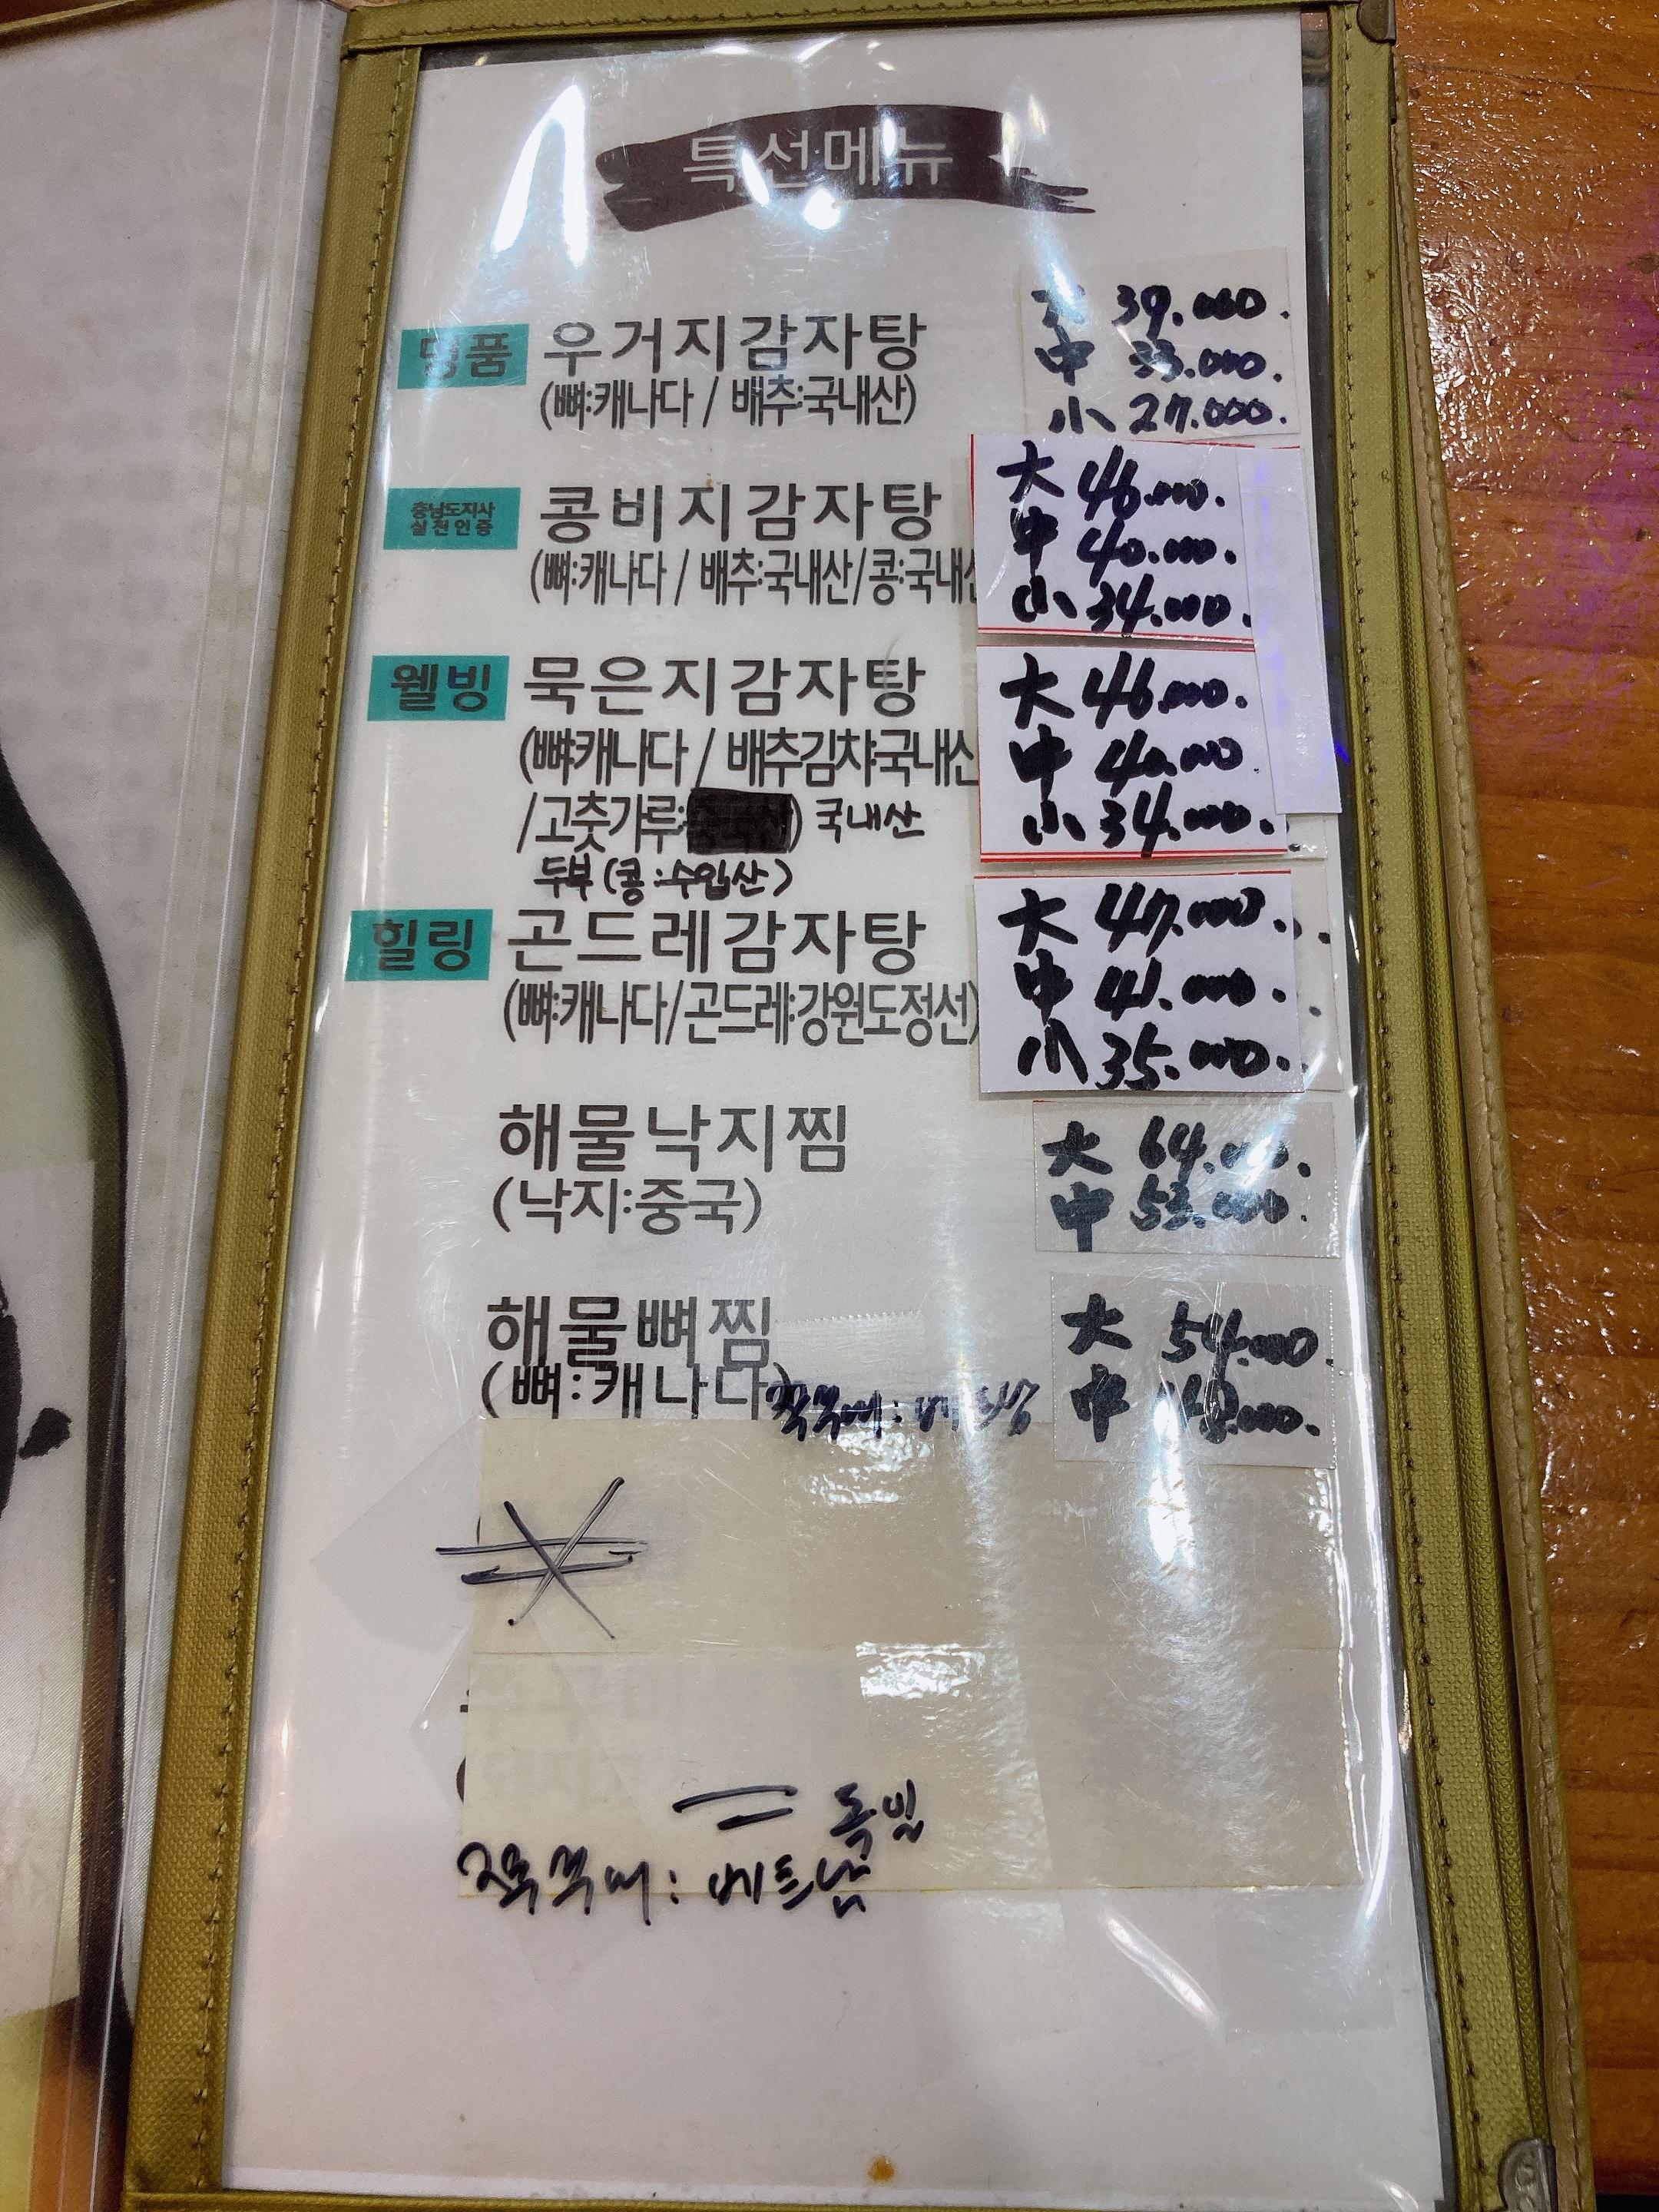 특선메뉴
명품 우거지감자탕
(뼈:캐나다 / 배추:국내산)
大 39.000.
中 33.000.
小 27.000.
충남도지사
실천인증
콩비지감자탕
(뼈:캐나다 / 배추:국내산/콩:국내산
大 46.000.
中 40.000.
小 34.000.
웰빙 묵은지감자탕
(뼈:캐나다 / 배추김치:국내산
/고춧가루: ) 국내산
두부 (콩:수입산)
大 46.000.
中 40.000
小 34.000.
힐링 곤드레감자탕
(뼈:캐나다/곤드레:강원도정선)
大 47.000.
中 41.000.
小 35.000.
해물낙지찜
(낙지:중국)
大 64.000.
中 53.000.
해물뼈찜
(뼈:캐나다) 쭈꾸미: 베트남
大 54.000.
中 48.000.
독일
쭈꾸미: 베트남